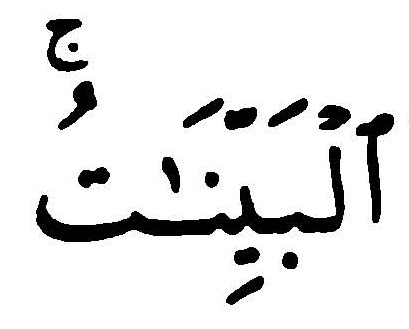 ٱلْبَيِّنَـٰتُۚ